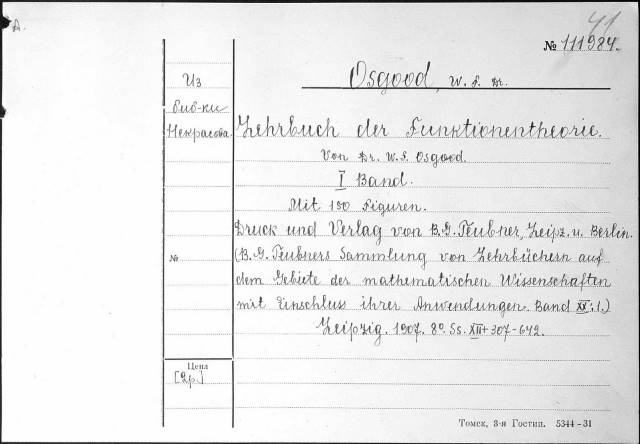 A.
41
№ 111984.
Из
биб-ки
Некрасова.
Osgood, W. F. Dr.
Lehrbuch der Funktionentheorie.
Von Dr. W. F. Osgood.
I Band.
Mit 150 Figuren.
Druck und Verlag von B. G. Teubner, Leipz. u. Berlin.
(B. G. Teubners Sammlung von Lehrbüchern auf
№
dem Gebiete der mathematischen Wissenschaften
mit Einschluss ihrer Anwendungen. Band XX; 1.)
Leipzig. 1907. 8º. Ss. XII+307-642.
Цена
[2р.]
Томск, 3-я Гостип. 5344-31